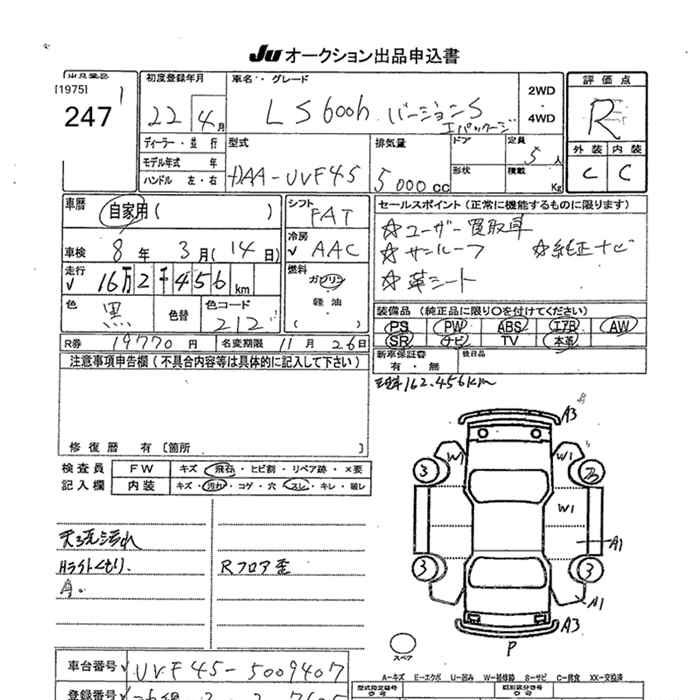 Ju オークション出品申込書
出品番号
[1975]
247
初度登録年月
22年 4月
車名・グレード
LS600h バージョンS
Iパッケージ
2WD
・
4WD
評価点
R
外装 内装
C C
ディーラー・並行
モデル年式 年
ハンドル 左・右
型式
DAA-UVF45
排気量
5,000cc
ドア
形状
定員
5人
積載
Kg
車歴
自家用 ( )
車検 8年 3月(14日)
走行 16万2千456km
色 黒
色替
色コード
212
シフト
FAT
冷房
AAC
燃料
ガソリン
軽油
( )
セールスポイント(正常に機能するものに限ります)
☆ユーザー買取車
☆サンルーフ ☆純正ナビ
☆革シート
装備品(純正品に限り○を付けてください)
PS PW ABS エアB AW
SR ナビ TV 本革
新車保証書
有・無
後日品
R券 19770円 名変期限 11月26日
注意事項申告欄(不具合内容等は具体的に記入して下さい)
修復歴 有 [箇所 ]
162,456km
検査員
記入欄
FW キズ・飛石・ヒビ割・リペア跡・×要
内装 キズ・汚れ・コゲ・穴・スレ・キレ・破レ
天張汚れ
Hライトくもり.
Rフロア歪
A3
W1
W1
3
W1
A1
3
3
A1
A3
P
スペア
車台番号 UVF45-5009407
登録番号
A=キズ E=エクボ U=凹み W=補修跡 S=サビ C=腐食 XX=交換済
型式指定番号
類別区分番号